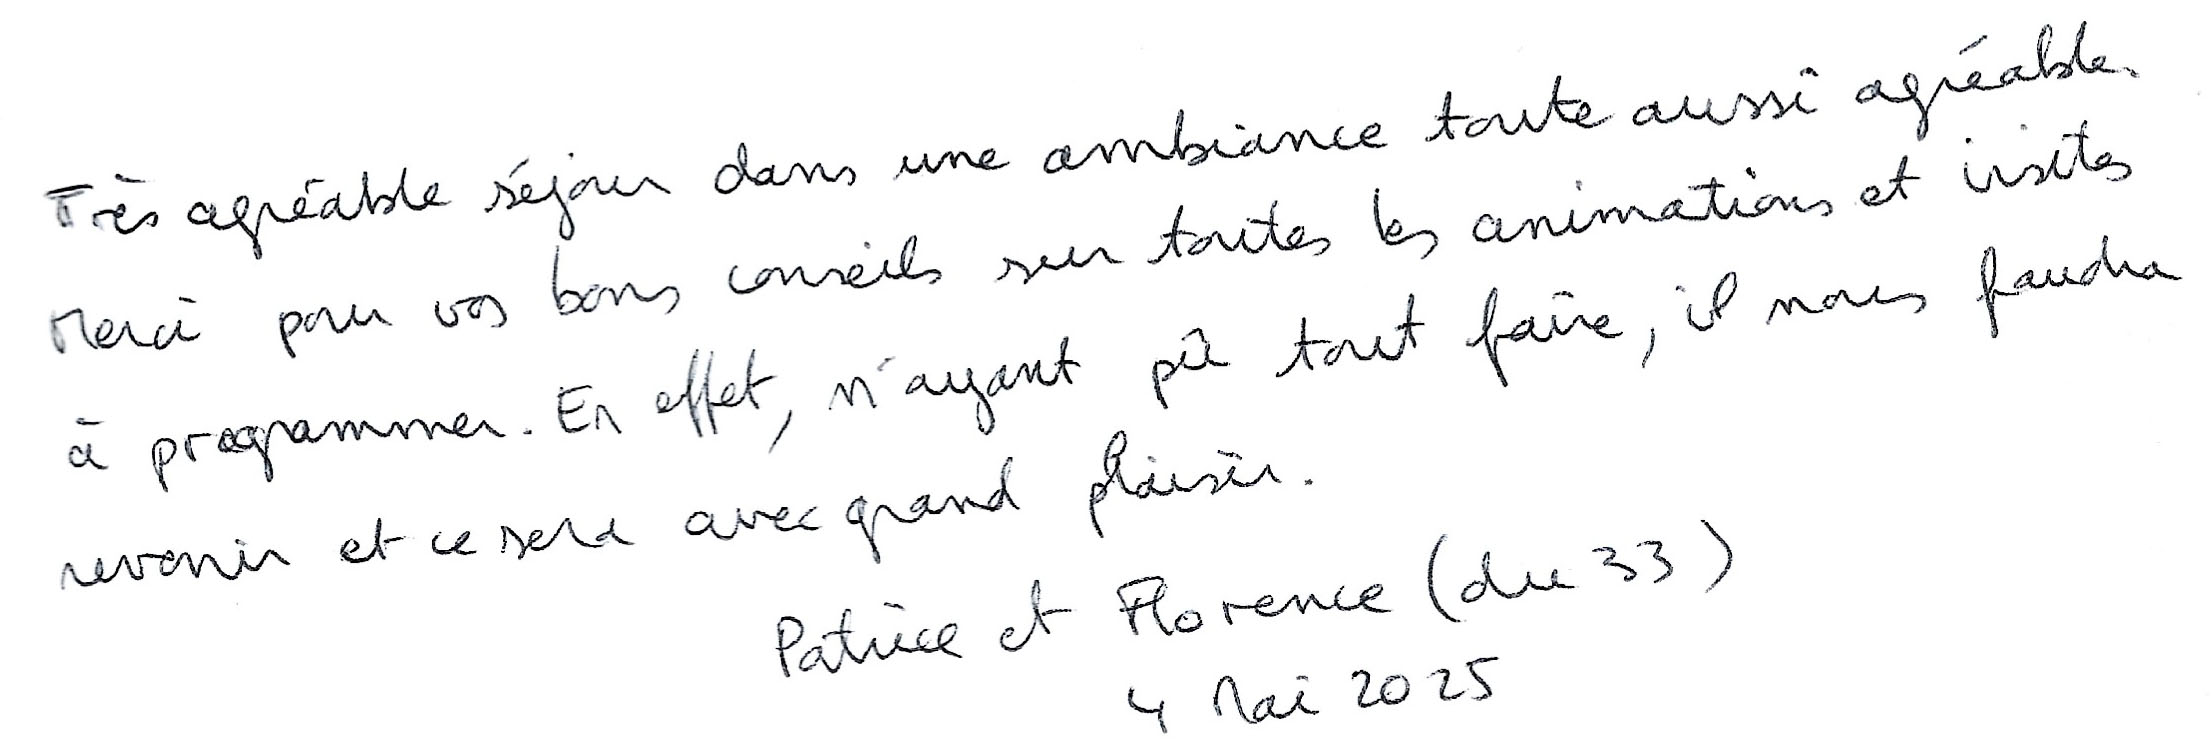 Très agréable séjour dans une ambiance toute aussi agréable.
Merci pour vos bons conseils sur toutes les animations et visites
à programmer. En effet, n'ayant pû tout faire, il nous faudra
revenir et ce sera avec grand plaisir.
Patrice et Florence (du 33)
4 Mai 2025